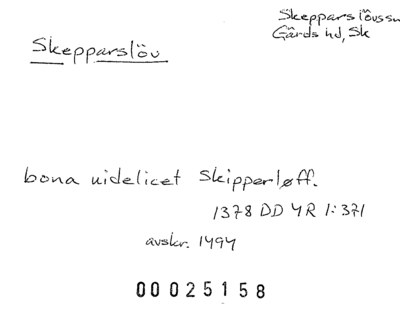 Skepparslövssn
Gärds hd, Sk
Skepparslöv
bona uidelicet Skipperløff.
1378 DD 4R 1:371
avskr. 1494
00025158